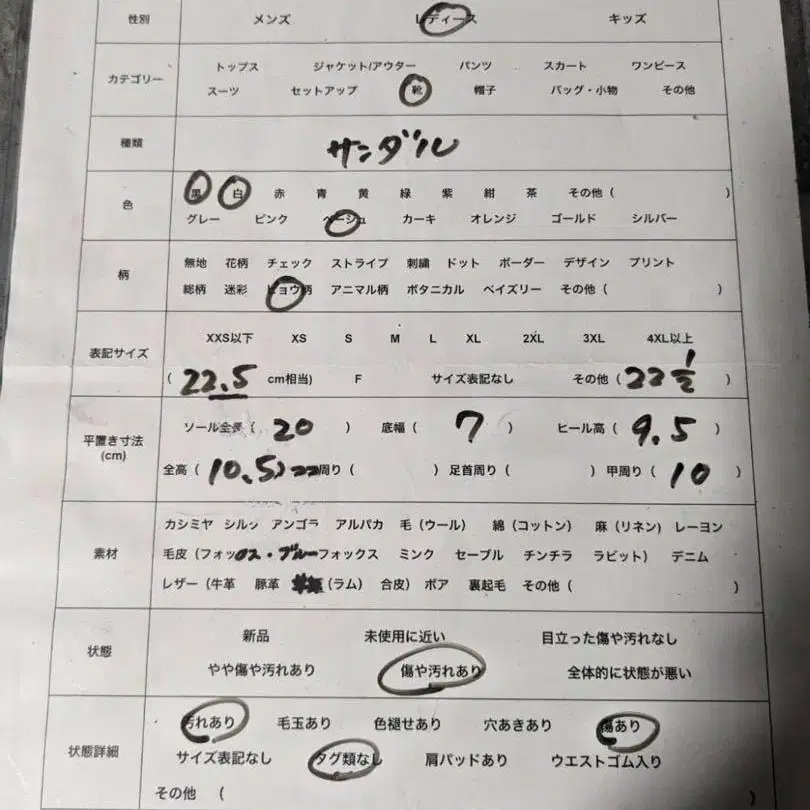 性別 メンズ レディース キッズ
カテゴリー トップス ジャケット/アウター パンツ スカート ワンピース
スーツ セットアップ 靴 帽子 バッグ・小物 その他
種類 サンダル
色 黒 白 赤 青 黄 緑 紫 紺 茶 その他 ( )
グレー ピンク ベージュ カーキ オレンジ ゴールド シルバー
柄 無地 花柄 チェック ストライプ 刺繍 ドット ボーダー デザイン プリント
総柄 迷彩 ヒョウ柄 アニマル柄 ボタニカル ペイズリー その他 ( )
表記サイズ XXS以下 XS S M L XL 2XL 3XL 4XL以上
( 22.5 cm相当) F サイズ表記なし その他 ( 22 1/2 )
平置き寸法 (cm) ソール全長 ( 20 ) 底幅 ( 7 ) ヒール高 ( 9.5 )
全高 ( 10.5 ) 周り ( ) 足首周り ( ) 甲周り ( 10 )
素材 カシミヤ シルク アンゴラ アルパカ 毛 (ウール) 綿 (コットン) 麻 (リネン) レーヨン
毛皮 (フォックス・ブルーフォックス ミンク セーブル チンチラ ラビット) デニム
レザー (牛革 豚革 (ラム) 合皮) ボア 裏起毛 その他 ( )
状態 新品 未使用に近い 目立った傷や汚れなし
やや傷や汚れあり 傷や汚れあり 全体的に状態が悪い
状態詳細 汚れあり 毛玉あり 色褪せあり 穴あきあり 傷あり
サイズ表記なし タグ類なし 肩パッドあり ウエストゴム入り
その他 ( )